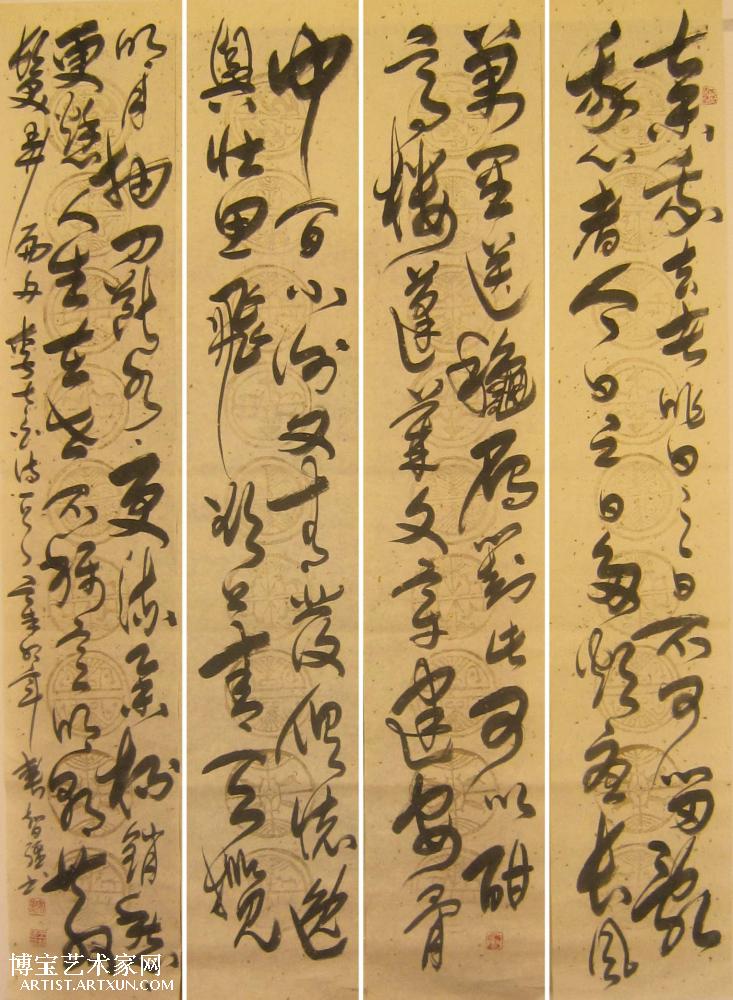 棄我去者昨日之日不可留亂
我心者今日之日多煩憂長風
萬里送龝雁對此可以酣
高樓蓬萊文章建安骨
中間小謝又清發俱懷逸
興壯思飛欲上青天攬
明月抽刀斷水水更流舉杯銷愁
更愁人生在世不稱意明朝散
髮弄扁舟 李太白詩一首 年 智強书
博宝艺术家网
ARTIST.ARTXUN.COM